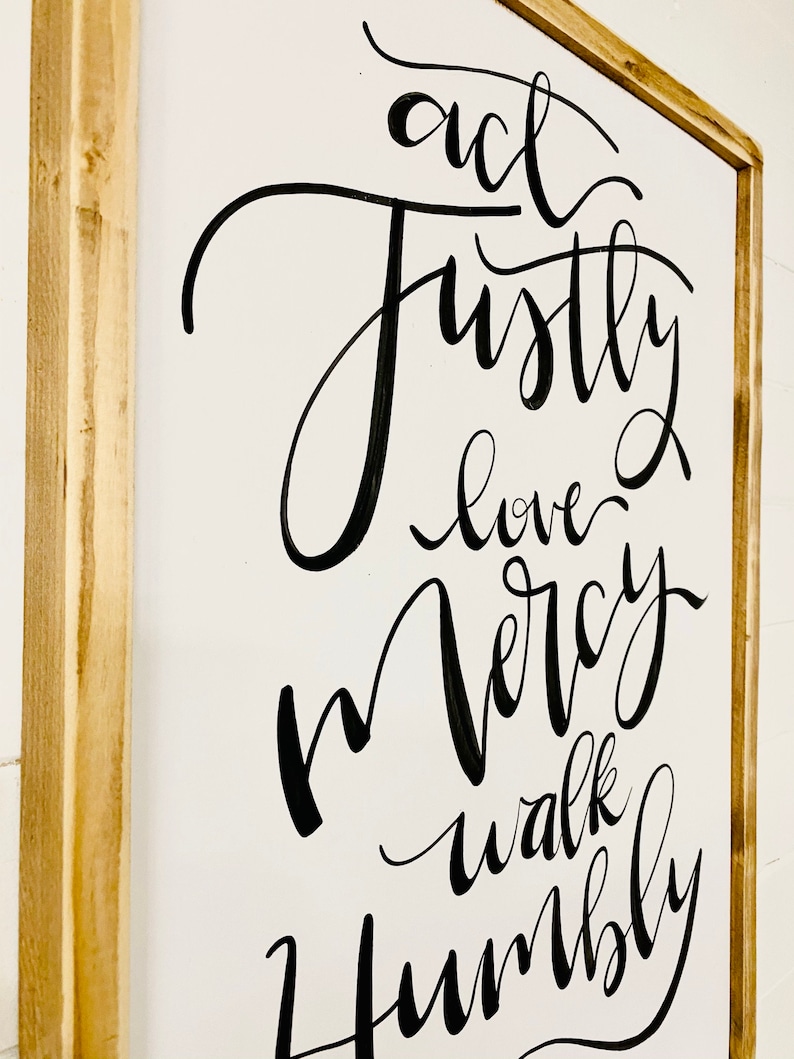 act
Justly
love
Mercy
walk
Humbly